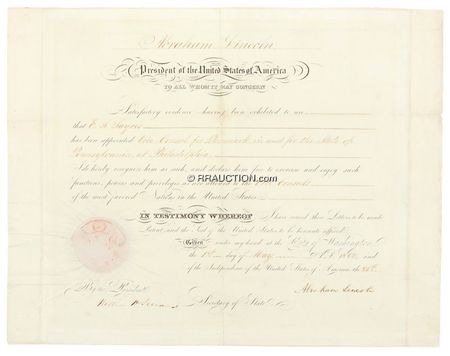 Abraham Lincoln
President of the United States of America
TO ALL WHOM IT MAY CONCERN
Satisfactory evidence having been exhibited to me
that E. A.
has been appointed Vice Consul for Denmark, in and for the State of
Pennsylvania, at Philadelphia
I do hereby recognize him as such, and declare him free to exercise and enjoy such
functions, powers and privileges as are allowed to the Vice Consuls
of the most favored Nations in the United States.
© RRAUCTION.COM
IN TESTIMONY WHEREOF I have caused these Letters to be made
Patent, and the Seal of the United States to be hereunto affixed.
Given under my hand at the City of Washington
the day of May A.D. 1862, and
of the Independence of the United States of America, the 86th.
By the President
Abraham Lincoln
Secretary of State